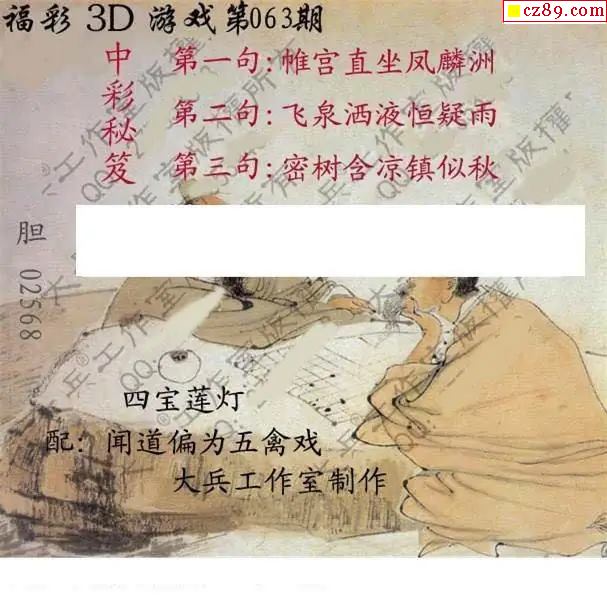 cz89.com
福彩 3D 游戏第063期
中彩秘笈
第一句:帷宫直坐凤麟洲
第二句:飞泉洒液恒疑雨
第三句:密树含凉镇似秋
胆 02568
四宝莲灯
配：闻道偏为五禽戏
大兵工作室制作